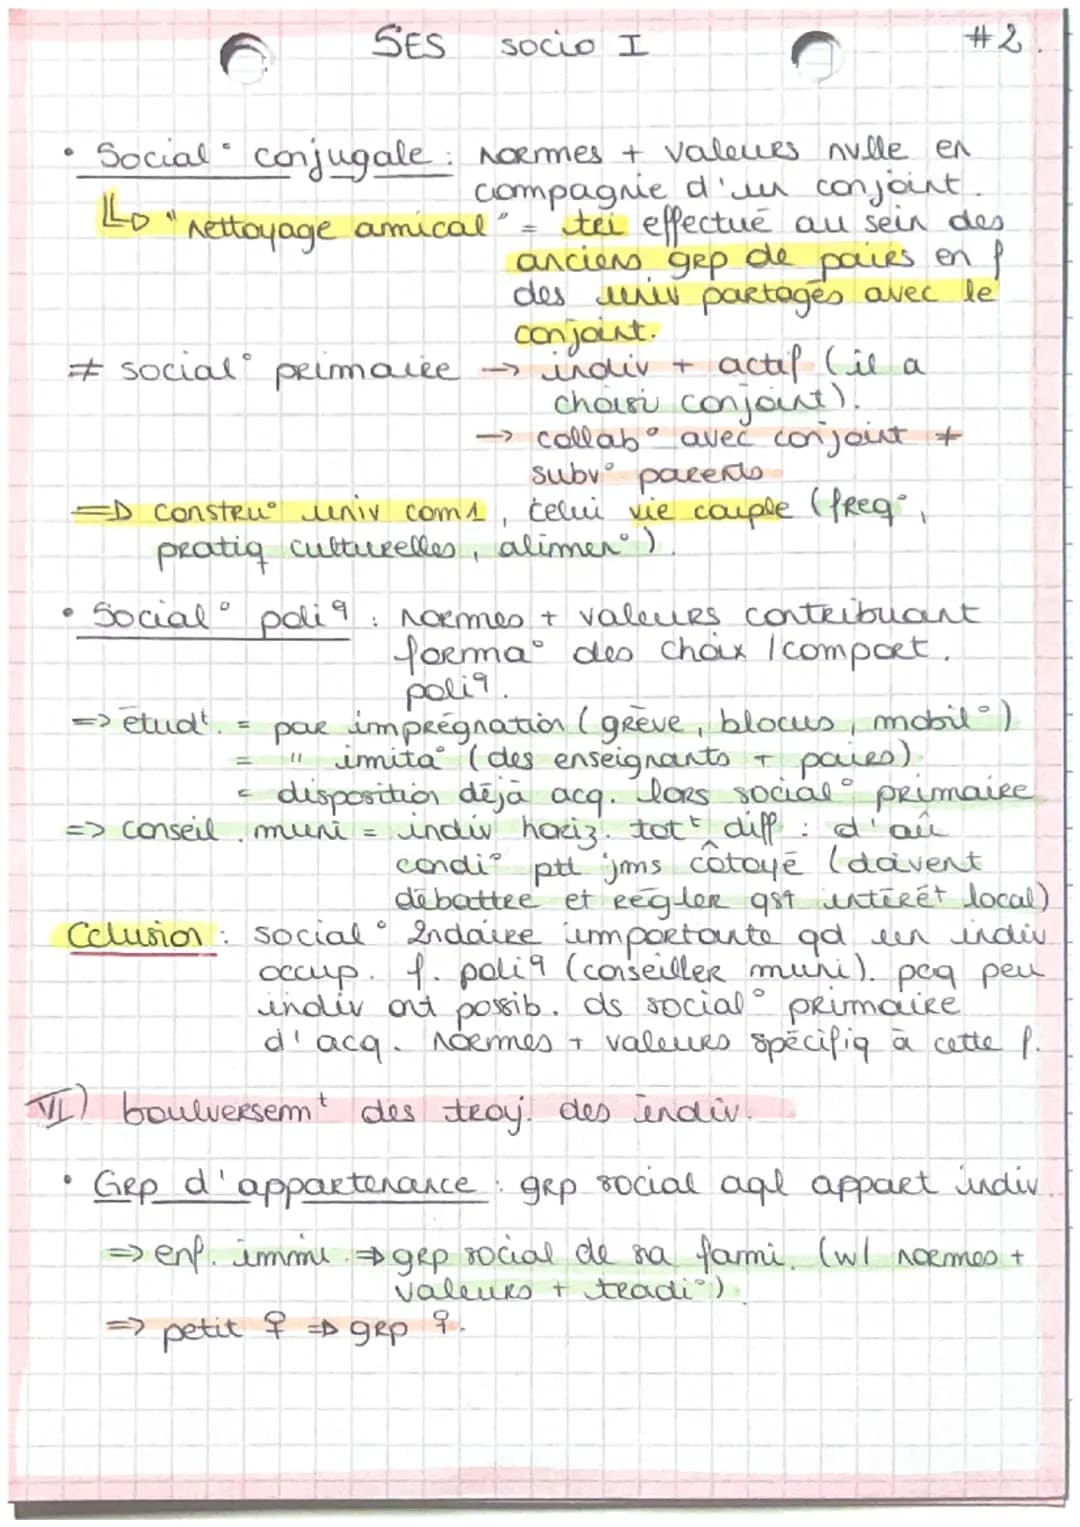 SES socio I #2.
• Social° conjugale : normes + valeurs nvlle en
compagnie d'un conjoint.
"nettoyage amical" = tri effectué au sein des
anciens grp de pairs en f
des univ partagés avec le
conjoint.
≠ social° primaire → indiv + actif (il a
choisi conjoint).
→ collab° avec conjoint ≠
subv° parents
=> constru° univ com1, celui vie couple (freq°,
pratiq culturelles, alimen°).
• Social° poliq : normes + valeurs contribuant
forma° des choix / comport.
poliq.
=> étudt. = par imprégnation (grève, blocus, mobil°)
= " imita° (des enseignants + pairs)
= disposition déjà acq. lors social° primaire
=> conseil muni = indiv horiz. tott diff : d'où
condi° ptt jms côtoyé (doivent
débattre et régler qst intérêt local)
Cclusion : social° 2ndaire importante qd un indiv
occup. f. poliq (conseiller muni). pcq peu
indiv ont possib. ds social° primaire
d'acq. normes + valeurs spécifiq à cette f.
VI) boulversemt des traj. des indiv.
• Grp d'appartenance : grp social aql appart indiv.
=> enf. immi. => grp social de sa fami. (w/ normes +
valeurs + tradi°)
=> petit ♀ => grp ♀.